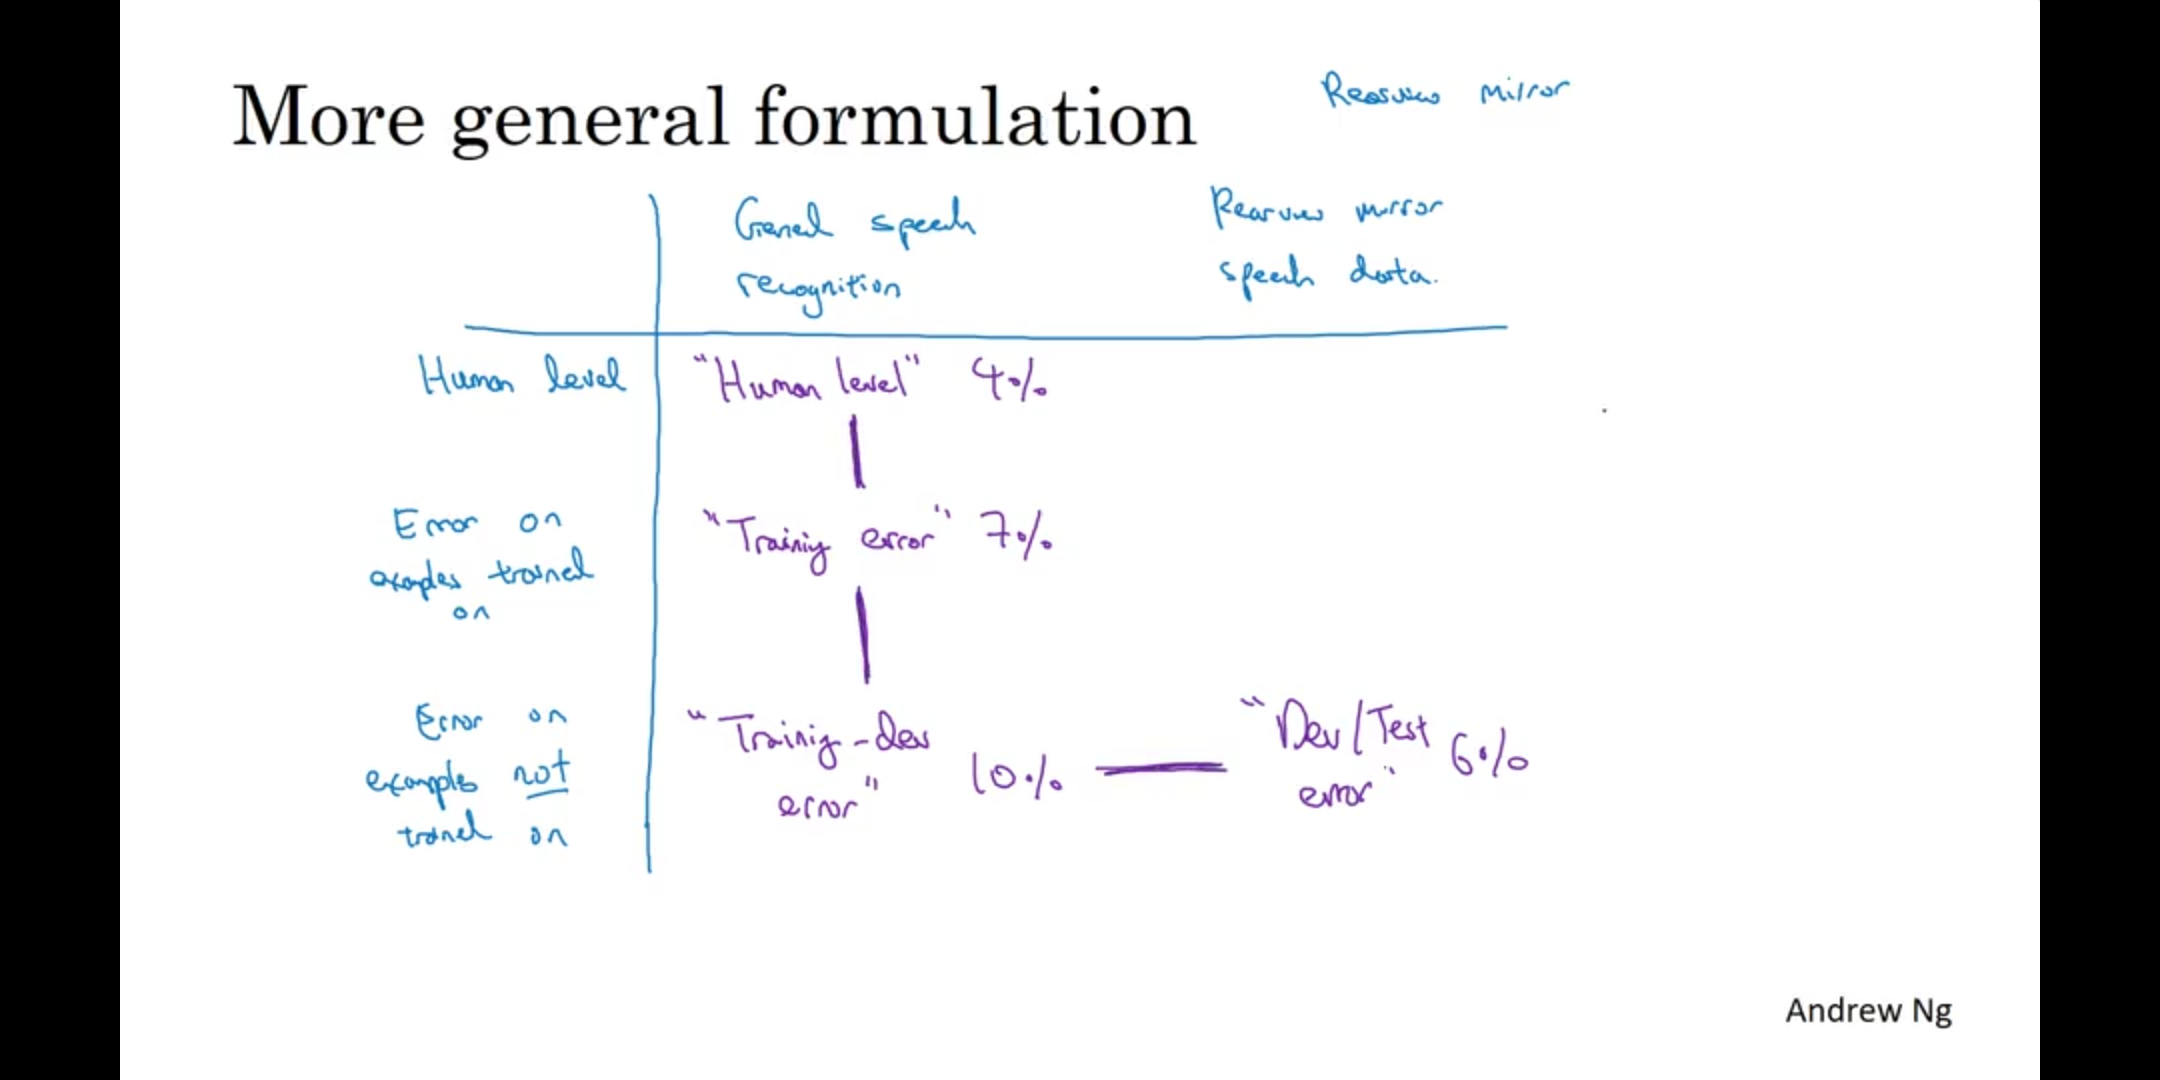 More general formulation
Rearview mirror
General speech
recognition
Rearview mirror
speech data.
Human level
"Human level" 4%
Error on
examples trained
on
"Training error" 7%
Error on
examples not
trained on
"Training-dev
error" 10%
"Dev/Test
error" 6%
Andrew Ng